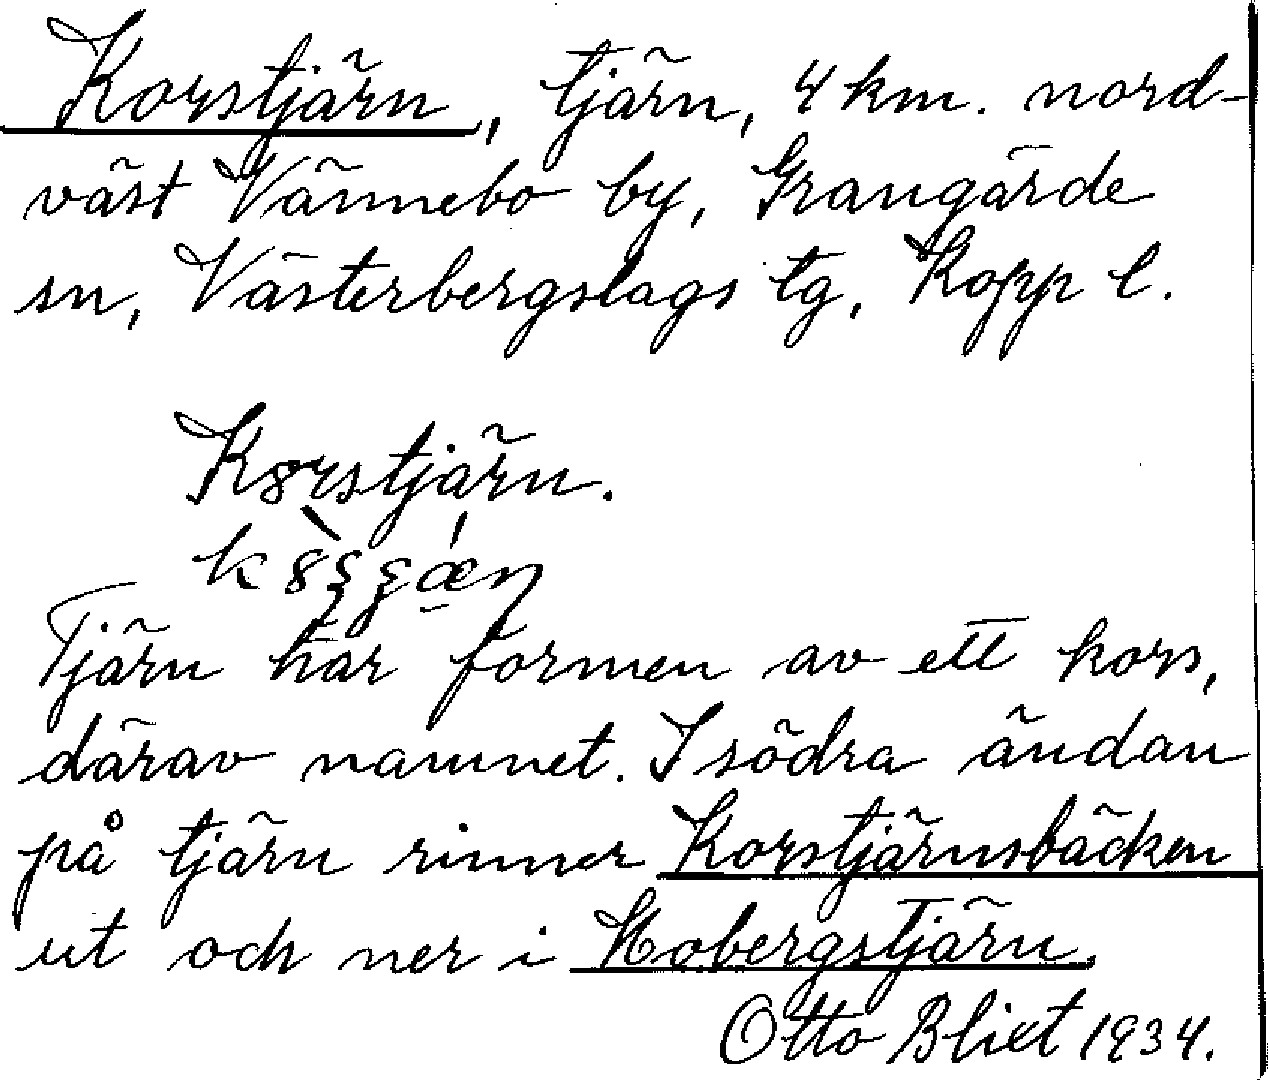 Korstjärn, tjärn, 4 km. nord-
väst Vännebo by, Grangärde
sn, Västerbergslags tg, Kopp l.
Korstjärn.
Tjärn har formen av ett kors,
därav namnet. I södra ändan
på tjärn rinner Korstjärnsbäcken
ut och ner i Hobergstjärn.
Otto Blixt 1934.